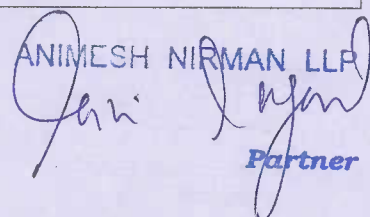 ANIMESH NIRMAN LLP
Partner